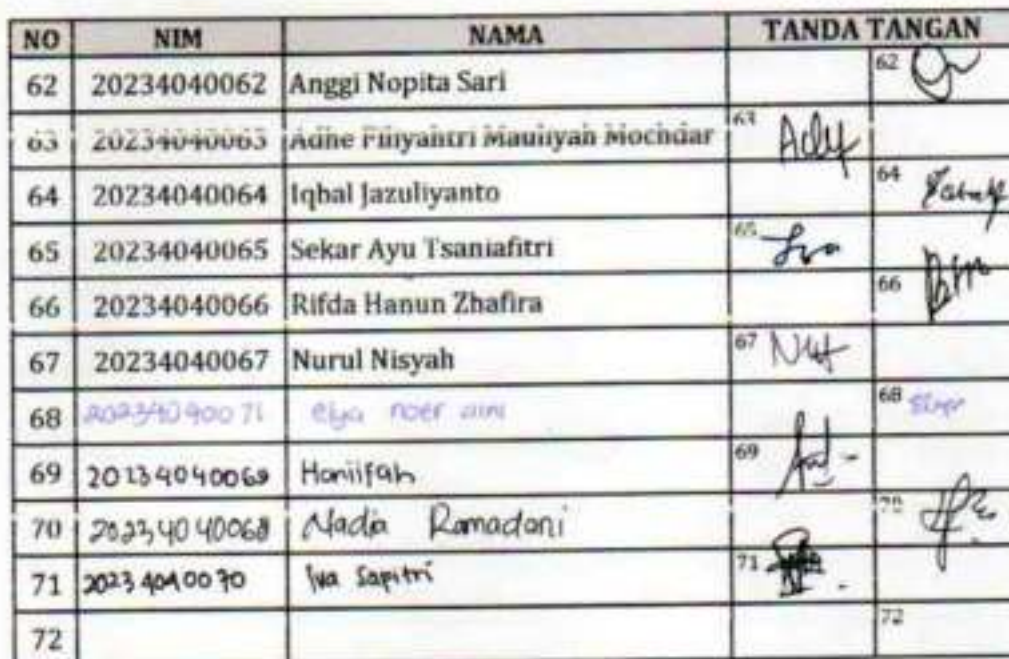 NO NIM NAMA TANDA TANGAN
62 20234040062 Anggi Nopita Sari 62
63 20234040063 Adhe Fitiyahtri Mauliyah Mochdar 63
64 20234040064 Iqbal Jazuliyanto 64
65 20234040065 Sekar Ayu Tsaniafitri 65
66 20234040066 Rifda Hanun Zhafira 66
67 20234040067 Nurul Nisyah 67
68 20234040071 elya noer aini 68
69 20234040069 Haniifah 69
70 20234040068 Nadia Ramadani 70
71 20234040070 Iva Sapitri 71
72 72